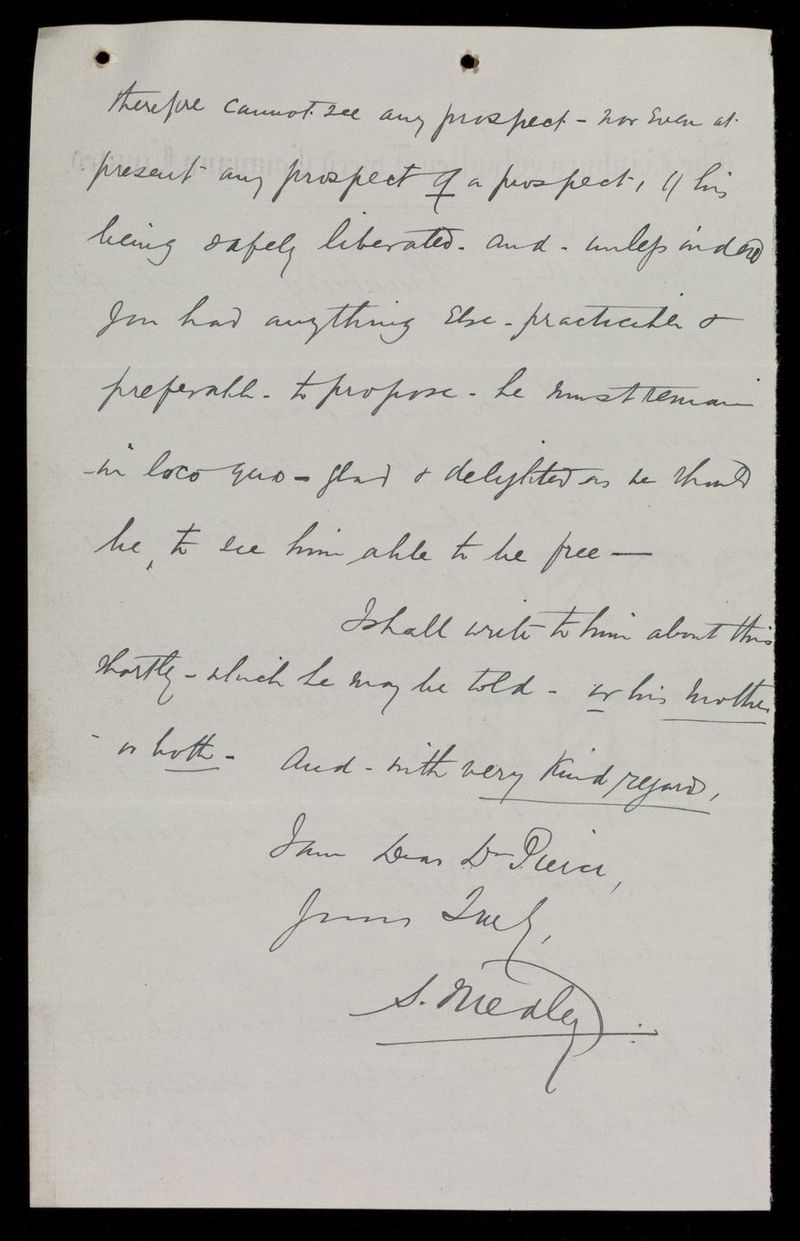 therefore cannot see any prospect - nor even at
present any prospect of a prospect, of his
being safely liberated. And - unless indeed
you had anything else - practicable &
preferable - to propose - he must remain
in loco quo - glad & delighted as we should
be, to see him able to be free —
I shall write to him about this
shortly - which he may be told - or his mother
- or both - And - with very kind regards,
I am Dear Dr Pierce,
Yours Truly,
S. Medley.